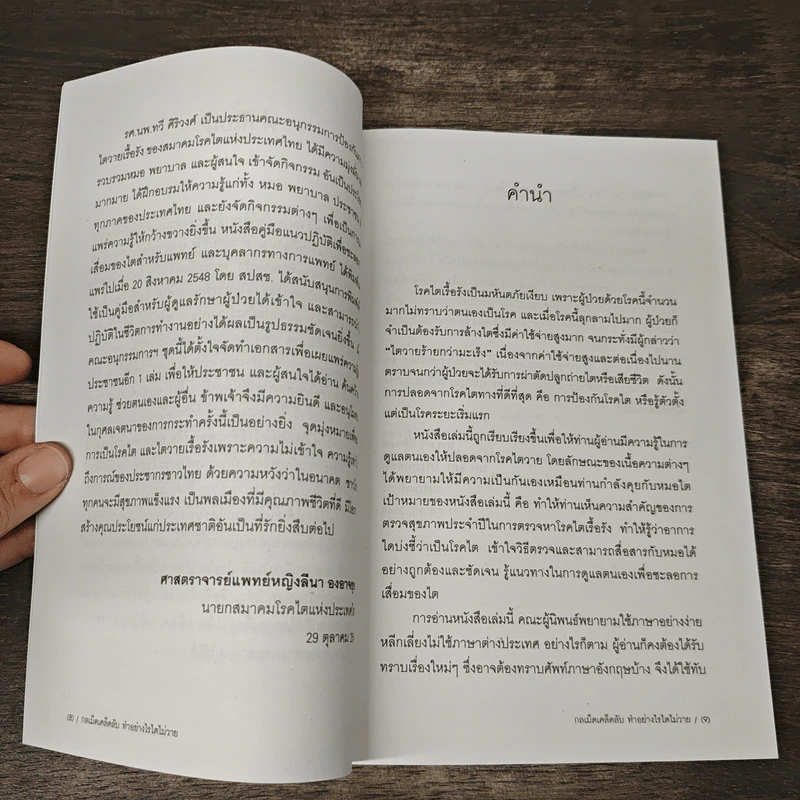 รศ.นพ.ทวี ศิริวงศ์ เป็นประธานคณะอนุกรรมการป้องกัน
ไตวายเรื้อรัง ของสมาคมโรคไตแห่งประเทศไทย ได้มีความมุ่งมั่น
รวบรวมหมอ พยาบาล และผู้สนใจ เข้าจัดกิจกรรม อันเป็นประโยชน์
มากมาย ได้ฝึกอบรมให้ความรู้แก่ทั้ง หมอ พยาบาล ประชาชน
ทุกภาคของประเทศไทย และยังจัดกิจกรรมต่างๆ เพื่อเป็นการ
แพร่ความรู้ให้กว้างขวางยิ่งขึ้น หนังสือคู่มือแนวปฏิบัติเพื่อชะลอ
เสื่อมของไตสำหรับแพทย์ และบุคลากรทางการแพทย์ ได้พิมพ์
แพร่ไปเมื่อ 20 สิงหาคม 2548 โดย สปสช. ได้สนับสนุนการพิมพ์
ใช้เป็นคู่มือสำหรับผู้ดูแลรักษาผู้ป่วยได้เข้าใจ และสามารถนำ
ปฏิบัติในชีวิตการทำงานอย่างได้ผลเป็นรูปธรรมชัดเจนยิ่งขึ้น
คณะอนุกรรมการฯ ชุดนี้ได้ตั้งใจจัดทำเอกสารเพื่อเผยแพร่ความรู้
ประชาชนอีก 1 เล่ม เพื่อให้ประชาชน และผู้สนใจได้อ่าน ค้นคว้า
ความรู้ ช่วยตนเองและผู้อื่น ข้าพเจ้าจึงมีความยินดี และอนุโมทนา
ในกุศลเจตนาของการกระทำครั้งนี้เป็นอย่างยิ่ง จุดมุ่งหมายเพื่อ
การเป็นโรคไต และไตวายเรื้อรังเพราะความไม่เข้าใจ ความรู้เท่า
ถึงการณ์ของประชากรชาวไทย ด้วยความหวังว่าในอนาคต ชาวไทย
ทุกคนจะมีสุขภาพแข็งแรง เป็นพลเมืองที่มีคุณภาพชีวิตที่ดี มีโอกาส
สร้างคุณประโยชน์แก่ประเทศชาติอันเป็นที่รักยิ่งสืบต่อไป
ศาสตราจารย์แพทย์หญิงลีนา องอาจยุทธ
นายกสมาคมโรคไตแห่งประเทศ
29 ตุลาคม
(8) / กลเม็ดเคล็ดลับ ทำอย่างไรไตไม่วาย
คำนำ
โรคไตเรื้อรังเป็นมหันตภัยเงียบ เพราะผู้ป่วยด้วยโรคนี้จำนวน
มากไม่ทราบว่าตนเองเป็นโรค และเมื่อโรคนี้ลุกลามไปมาก ผู้ป่วยก็
จำเป็นต้องรับการล้างไตซึ่งมีค่าใช้จ่ายสูงมาก จนกระทั่งมีผู้กล่าวว่า
“ไตวายร้ายกว่ามะเร็ง” เนื่องจากค่าใช้จ่ายสูงและต่อเนื่องไปนาน
ตราบจนกว่าผู้ป่วยจะได้รับการผ่าตัดปลูกถ่ายไตหรือเสียชีวิต ดังนั้น
การปลอดจากโรคไตทางที่ดีที่สุด คือ การป้องกันโรคไต หรือรู้ตัวตั้ง
แต่เป็นโรคระยะเริ่มแรก
หนังสือเล่มนี้ถูกเรียบเรียงขึ้นเพื่อให้ท่านผู้อ่านมีความรู้ในการ
ดูแลตนเองให้ปลอดจากโรคไตวาย โดยลักษณะของเนื้อความต่างๆ
ได้พยายามให้มีความเป็นกันเองเหมือนท่านกำลังคุยกับหมอไต
เป้าหมายของหนังสือเล่มนี้ คือ ทำให้ท่านเห็นความสำคัญของการ
ตรวจสุขภาพประจำปีในการตรวจหาโรคไตเรื้อรัง ทำให้รู้ว่าอาการ
ใดบ่งชี้ว่าเป็นโรคไต เข้าใจวิธีตรวจและสามารถสื่อสารกับหมอได้
อย่างถูกต้องและชัดเจน รู้แนวทางในการดูแลตนเองเพื่อชะลอการ
เสื่อมของไต
การอ่านหนังสือเล่มนี้ คณะผู้นิพนธ์พยายามใช้ภาษาอย่างง่าย
หลีกเลี่ยงไม่ใช้ภาษาต่างประเทศ อย่างไรก็ตาม ผู้อ่านก็คงต้องได้รับ
ทราบเรื่องใหม่ๆ ซึ่งอาจต้องทราบศัพท์ภาษาอังกฤษบ้าง จึงได้ใช้ทับ
กลเม็ดเคล็ดลับ ทำอย่างไรไตไม่วาย / (9)